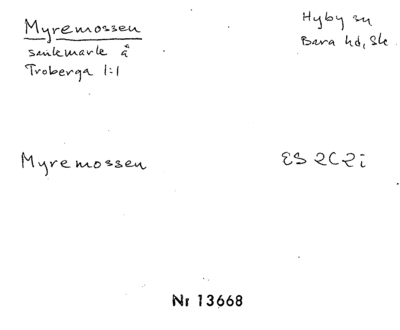 Myremossen
sankmark å
Troberga 1:1
Hyby sn
Bara hd, Sk.
Myremossen
ES 2C2i
Nr 13668